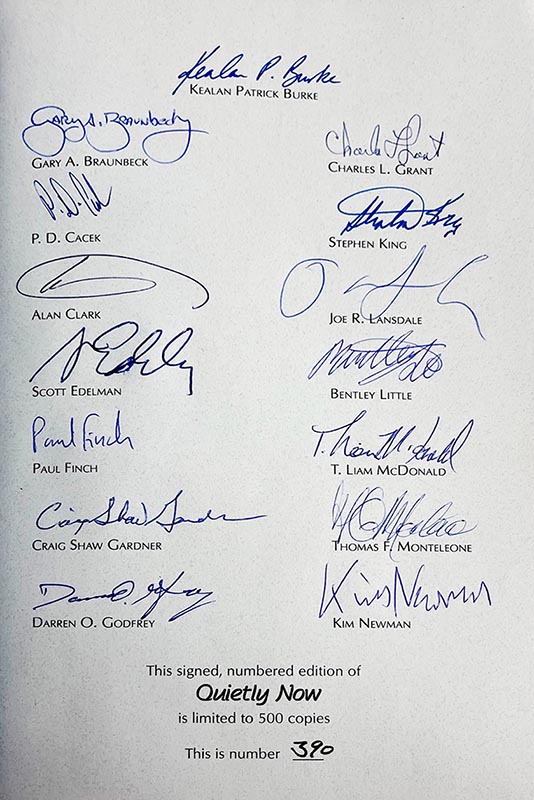 Kealan P. Burke
KEALAN PATRICK BURKE
Gary A. Braunbeck
GARY A. BRAUNBECK
Charles L Grant
CHARLES L. GRANT
P. D.
P. D. CACEK
Stephen King
STEPHEN KING
ALAN CLARK
JOE R. LANSDALE
S Edelman
SCOTT EDELMAN
Bentley Little
BENTLEY LITTLE
Paul Finch
PAUL FINCH
T. Liam McDonald
T. LIAM MCDONALD
Craig Shaw Gardner
CRAIG SHAW GARDNER
Monteleone
THOMAS F. MONTELEONE
Darren O. Godfrey
DARREN O. GODFREY
Kim Newman
KIM NEWMAN
This signed, numbered edition of
Quietly Now
is limited to 500 copies
This is number 390